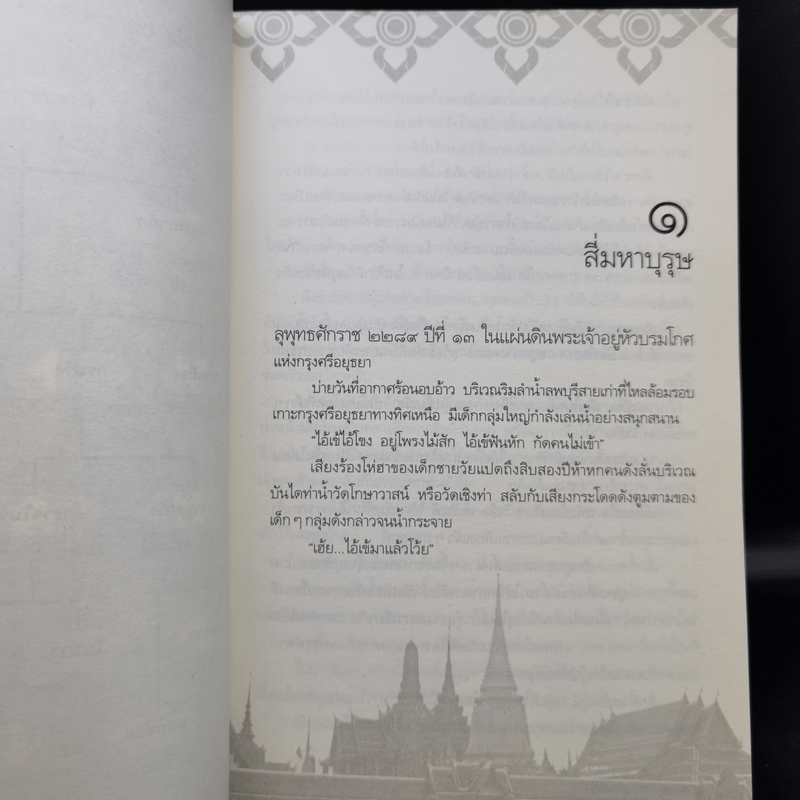 ๑
สี่มหาบุรุษ
ลุพุทธศักราช ๒๒๘๙ ปีที่ ๑๓ ในแผ่นดินพระเจ้าอยู่หัวบรมโกศ
แห่งกรุงศรีอยุธยา
บ่ายวันที่อากาศร้อนอบอ้าว บริเวณริมลำน้ำลพบุรีสายเก่าที่ไหลล้อมรอบ
เกาะกรุงศรีอยุธยาทางทิศเหนือ มีเด็กกลุ่มใหญ่กำลังเล่นน้ำอย่างสนุกสนาน
“ไอ้เข้ไอ้โขง อยู่โพรงไม้สัก ไอ้เข้ฟันหัก กัดคนไม่เข้า”
เสียงร้องโห่ฮาของเด็กชายวัยแปดถึงสิบสองปีห้าหกคนดังลั่นบริเวณ
บันไดท่าน้ำวัดโกษาวาสน์ หรือวัดเชิงท่า สลับกับเสียงกระโดดดังตูมตามของ
เด็ก ๆ กลุ่มดังกล่าวจนน้ำกระจาย
“เฮ้ย...ไอ้เข้มาแล้วโว้ย”